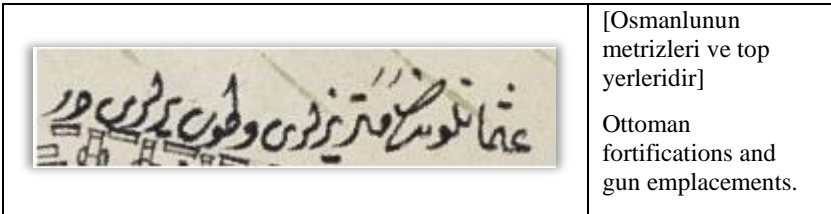 عثمانلونك متريزلرى وطوپ يرلرى در
[Osmanlunun
metrizleri ve top
yerleridir]
Ottoman
fortifications and
gun emplacements.